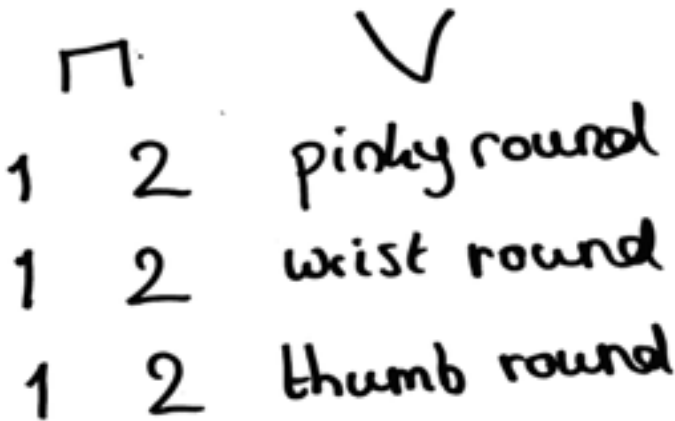 1 2 pinky round
1 2 wrist round
1 2 thumb round